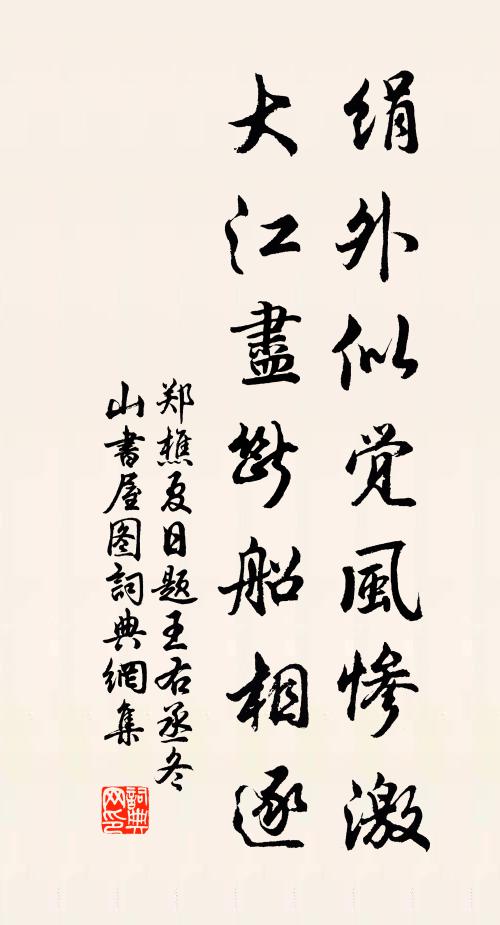 绢外似觉風惨激
大江盡断船相逐
郑樵夏日题王右丞冬
山書屋图詞典網集
詞典
网印